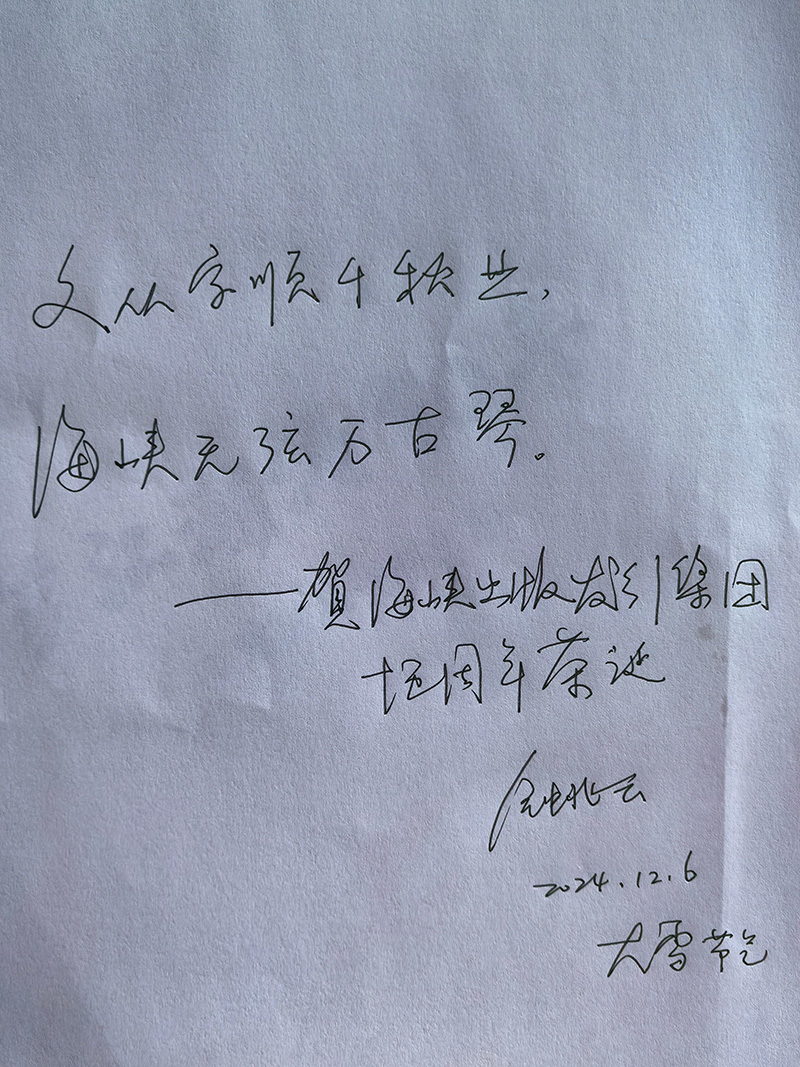 文从字顺千秋业，
海峡无弦万古琴。
——賀海峡出版发行集团
十五周年華诞
2024.12.6
大雪节气